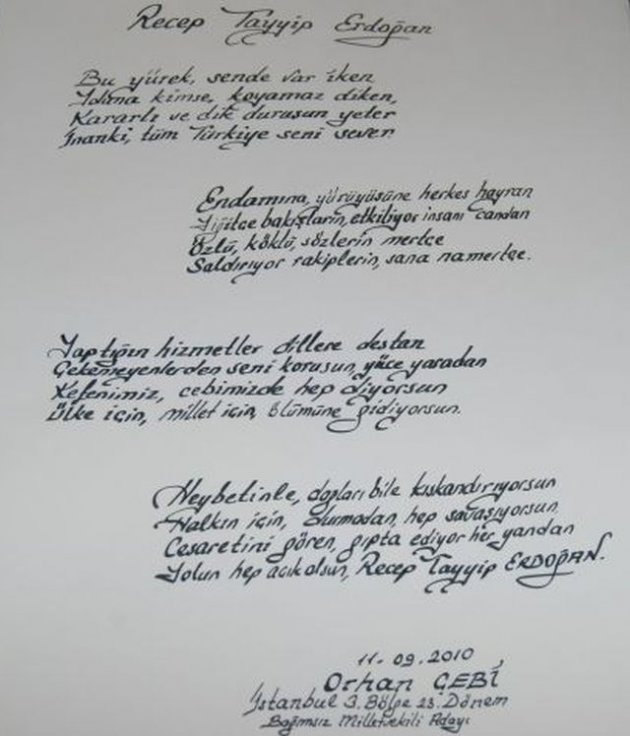 Recep Tayyip Erdoğan
Bu yürek, sende var iken
Yoluna kimse, koyamaz diken,
Kararlı ve dik duruşun yeter
İnanki, tüm Türkiye seni sever.
Endamına, yürüyüşüne herkes hayran
Yiğitçe bakışların, etkiliyor insanı candan
Özlü, köklü, sözlerin mertçe
Saldırıyor rakiplerin, sana namertçe.
Yaptığın hizmetler dillere destan
Çekemeyenlerden seni korusun, yüce yaradan
Kefenimiz, cebimizde hep diyorsun
Ülke için, millet için, ölümüne gidiyorsun.
Heybetinle, dağları bile kıskandırıyorsun
Halkın için, durmadan, hep savaşıyorsun
Cesaretini gören, gıpta ediyor her yandan
Yolun hep açık olsun, Recep Tayyip ERDOĞAN.
11-09.2010
Orhan ÇEBİ
İstanbul 3. Bölge 23. Dönem
Bağımsız Milletvekili Adayı